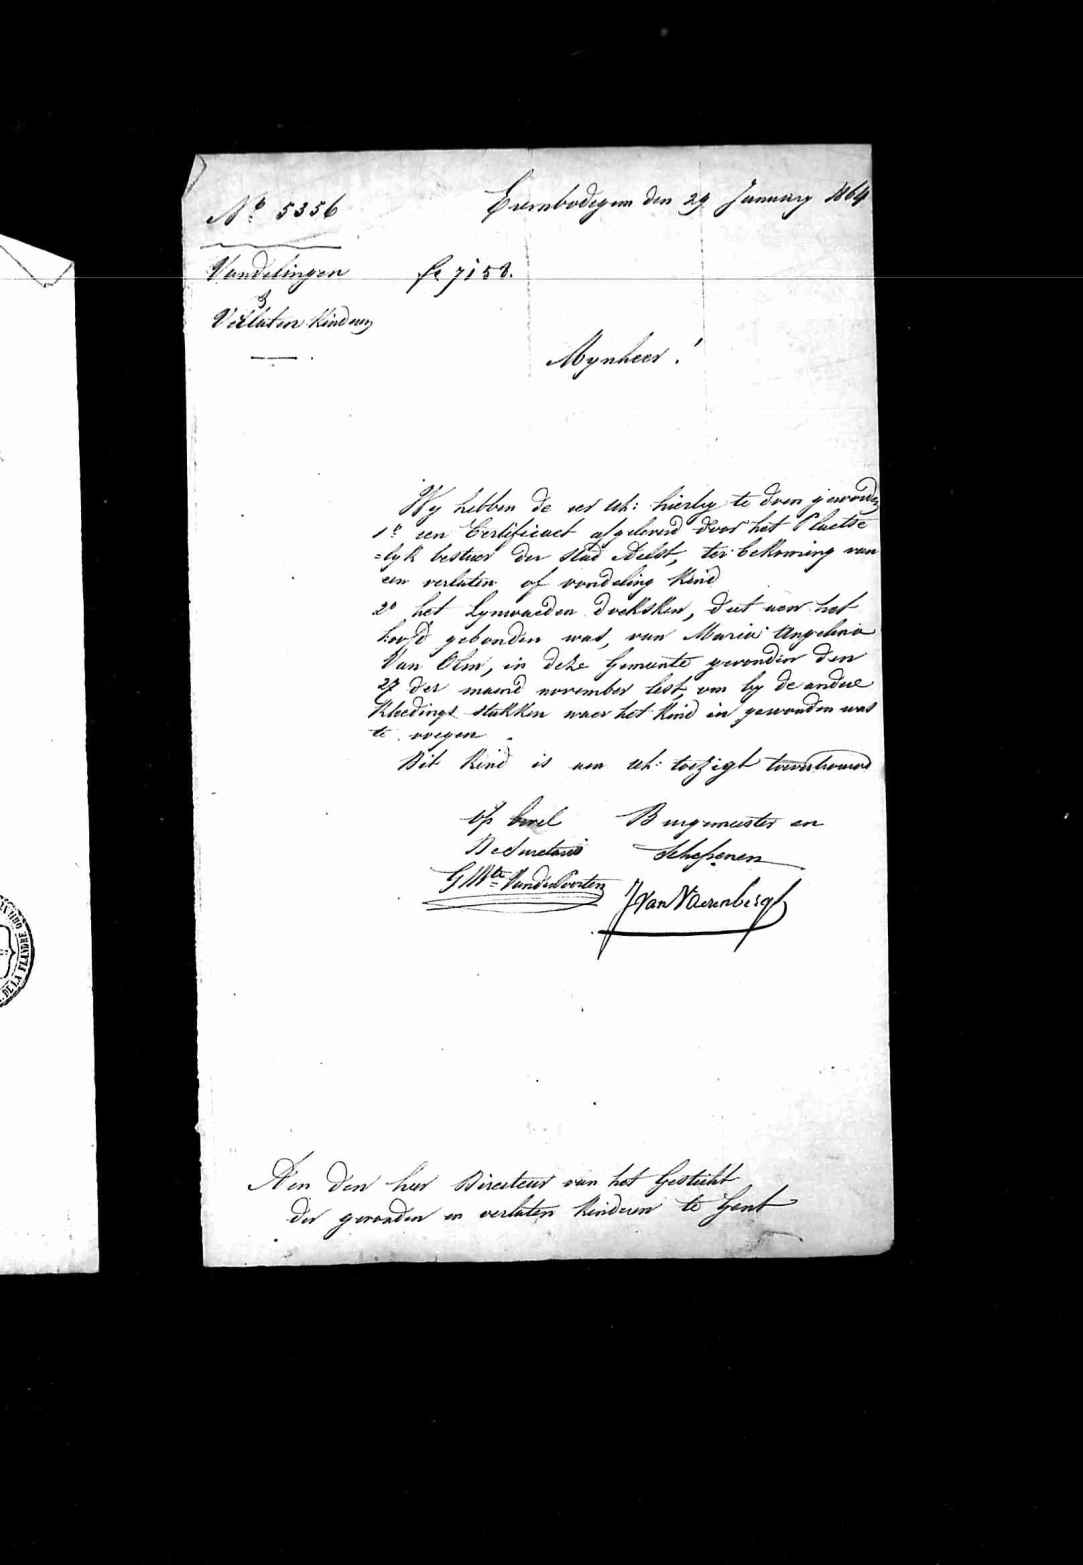 Nº 5356
Erembodegem den 29 January 1864
Vondelingen
&
Verlaten Kinderen
fe 7158.
Mynheer !
Wy hebben de eer UE: hierby te doen geworden
1º een Certificaet afgeleverd door het Plaetse
=lyk bestuer der stad Aelst, ter bekoming van
een verlaten of vondeling Kind
2º het Lynwaeden doeksken, dat aen het
hoofd gebonden was, van Maria Angelina
Van Olm, in deze Gemeente gevonden den
27 der maend november lest, om by de andere
Kleedings stukken waer het kind in gewonden was
te voegen
Dit Kind is aen UE: toezigt toevertrouwd
Op bevel
Burgmeester en
De Secretaris
Schepenen
J Van Vaerenbergh
Aen den heer Directeur van het Gesticht
der gevonden en verlaten Kinderen te Gent
DE LA FLANDRE